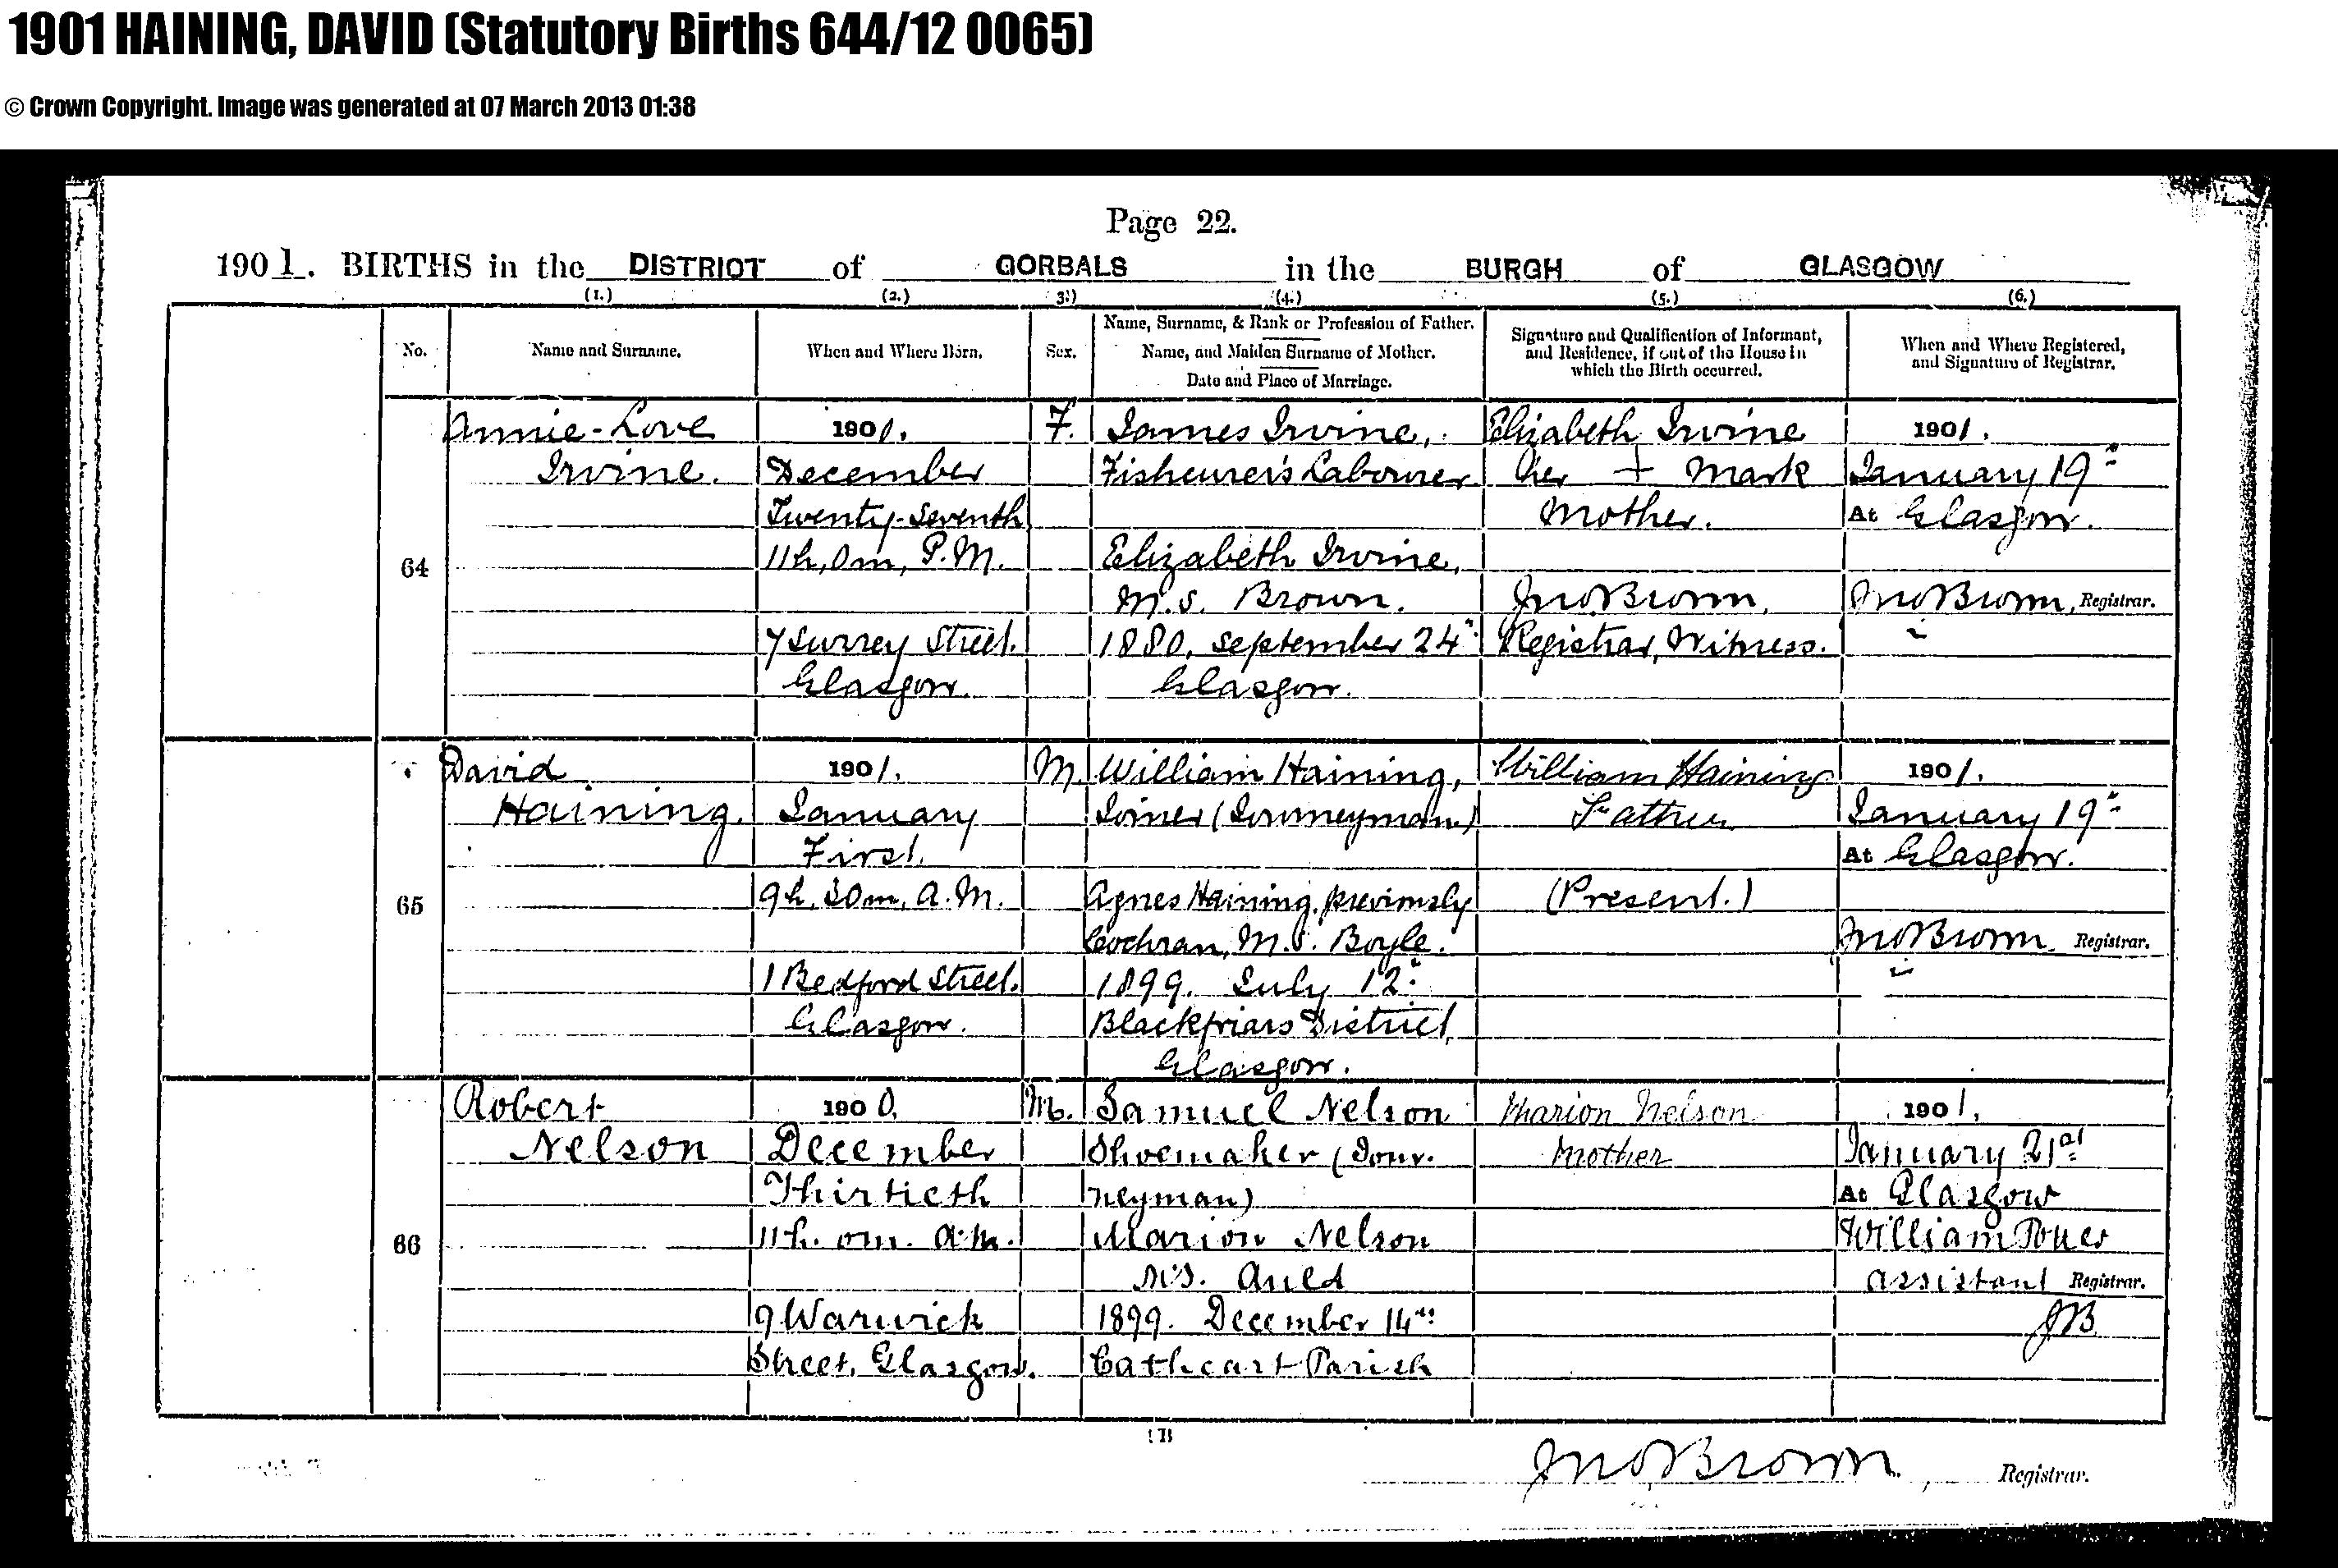 1901 HAINING, DAVID (Statutory Births 644/12 0065)
© Crown Copyright. Image was generated at 07 March 2013 01:38
Page 22.
1901. BIRTHS in the DISTRICT of GORBALS in the BURGH of GLASGOW
(1.) (2.) 3.) (4.) (5.) (6.)
No.
Name and Surname.
When and Where Born.
Sex.
Name, Surname, & Rank or Profession of Father.
Name, and Maiden Surname of Mother.
Date and Place of Marriage.
Signature and Qualification of Informant,
and Residence, if out of the House in
which the Birth occurred.
When and Where Registered,
and Signature of Registrar.
64
Annie-Love
Irvine.
1901.
December
Twenty-Seventh
11h, 0m, P.M.
7 Surrey Street.
Glasgow.
F.
James Irvine,
Labourer
Elizabeth Irvine,
M.S. Brown.
1880, September 24"
Glasgow.
Elizabeth Irvine
her + Mark
Mother.
Jno Brown,
Registrar, Witness.
1901.
January 19"
At Glasgow.
Jno Brown, Registrar.
65
David
Haining.
1901.
January
First.
9h, 30m, A.M.
1 Bedford Street.
Glasgow.
M.
William Haining,
Joiner (Journeyman)
Agnes Haining, previously
Cochran, M.S. Boyle.
1899. July 12"
Blackfriars District,
Glasgow.
William Haining
Father
(Present.)
1901.
January 19"
At Glasgow.
Jno Brown Registrar.
66
Robert
Nelson
1900.
December
Thirtieth
11h. 0m. A.M.
9 Warwick
Street, Glasgow.
M.
Samuel Nelson
Shoemaker (Jour-
neyman)
Marion Nelson
M.S. Auld
1899. December 14th
Cathcart Parish
Marion Nelson
Mother
1901.
January 21st
At Glasgow
William
Assistant Registrar.
JB
Jno Brown, Registrar.